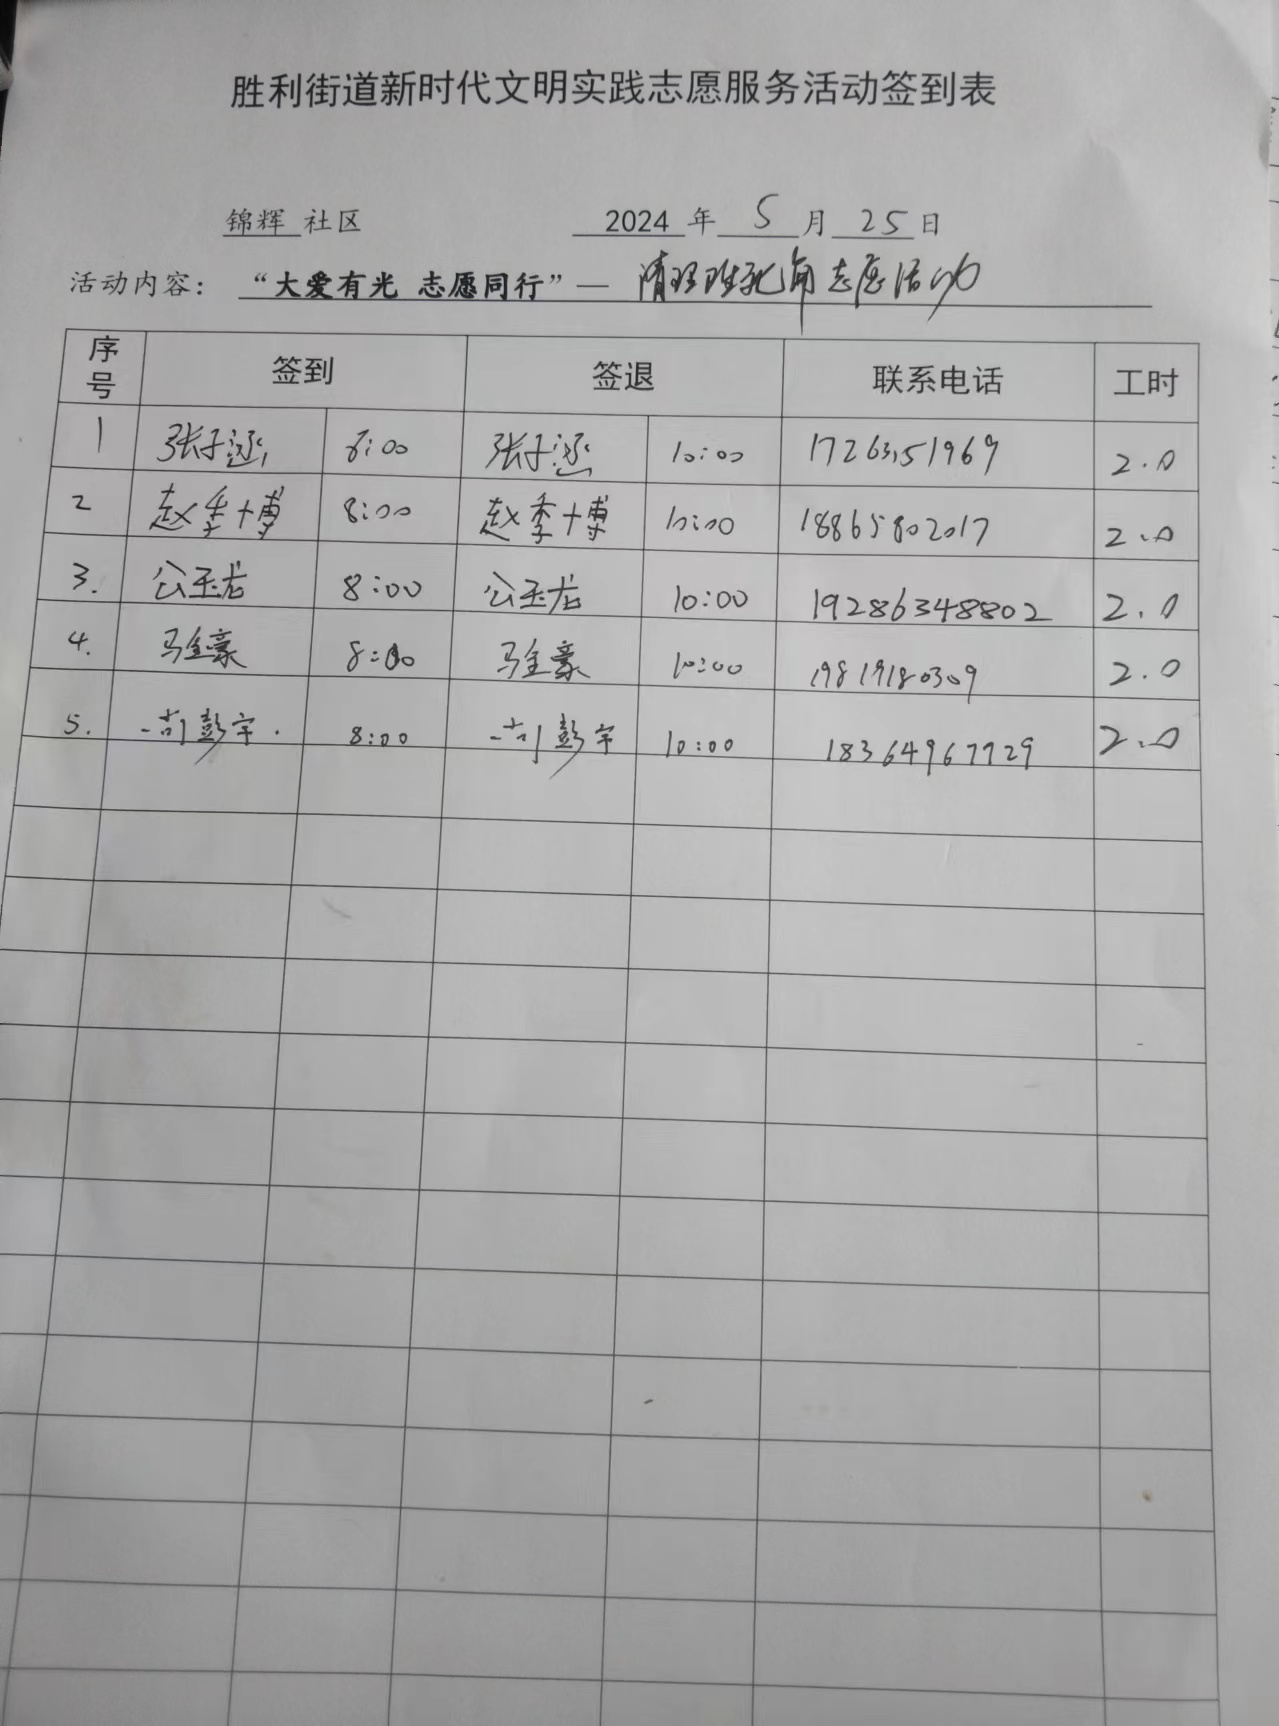 胜利街道新时代文明实践志愿服务活动签到表
锦辉 社区 2024 年 5 月 25 日
活动内容：“大爱有光 志愿同行”— 清理卫生死角志愿活动
序号 签到 签退 联系电话 工时
1 张子 8:00 张子 10:00 17263151969 2.0
2 赵季博 8:00 赵季博 10:00 18865802017 2.0
3. 公玉龙 8:00 公玉龙 10:00 19286348802 2.0
4. 马金豪 8:00 马金豪 10:00 19819180309 2.0
5. 苟彭宇 8:00 苟彭宇 10:00 18364967729 2.0